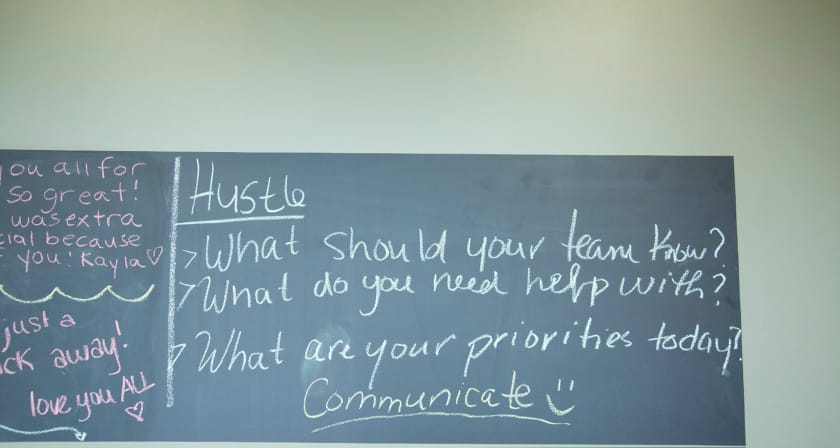 ou all for
so great!
was extra
cial because
you! Kayla♡
just a
ck away!
love you ALL
♡
Hustle
>What should your team know?
>What do you need help with?
>What are your priorities today?
Communicate :)